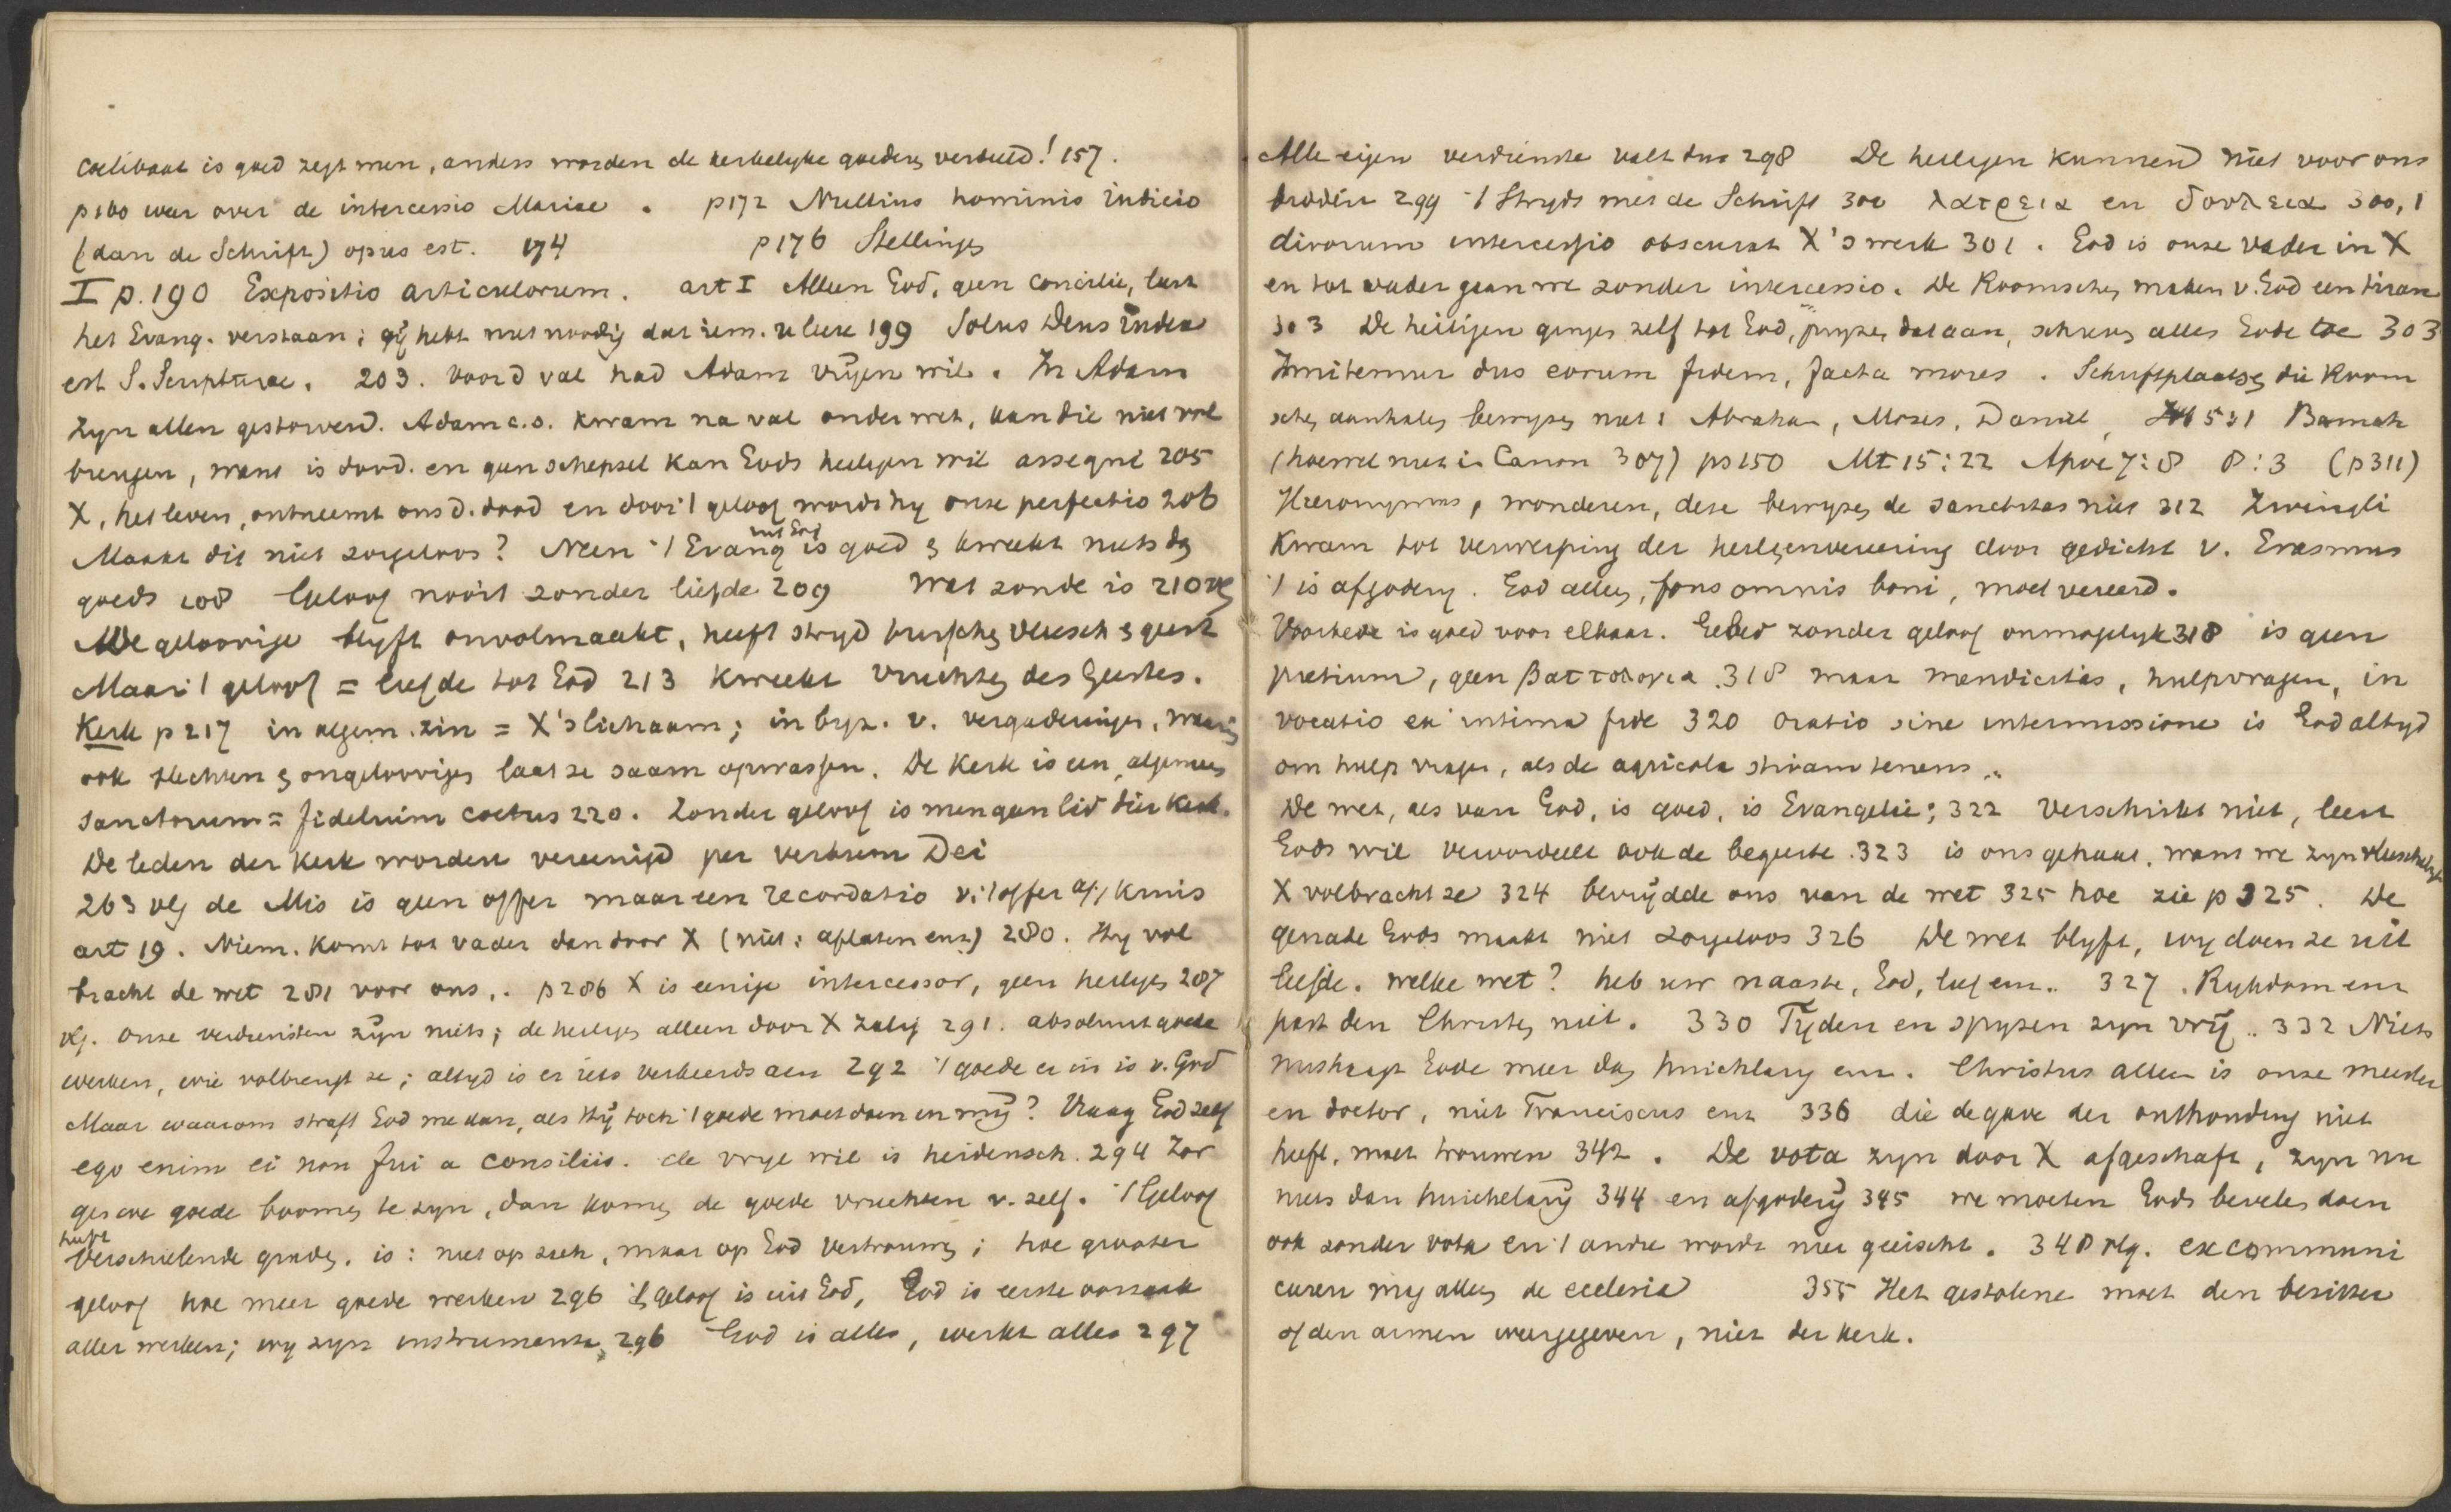 coelibaat is goed zegt men, anders worden de kerkelyke goederen verdeeld! 157.
p160 weer over de intercessio Mariae. p172 Nullius hominis indicio
(dan de Schrift) opus est. 174 p176 Stellingen
I p.190 Expositio articulorum. art I Alleen God, geen concilie, laat
het Evang. verstaan; gij hebt niet noodig dat iem. u leere 199 Solus Deus index
est S. Scripturae. 203. voor d val had Adam vrijen wil. In Adam
zyn allen gestorven. Adam c.s. kwam na val onder wet, kan die niet vol
brengen, want is dood. en geen schepsel kan Gods heiligen wil assequi 205
X, het leven, ontneemt ons d. dood en door 't geloof wordt hy onze perfectio 206
Maakt dit niet zorgeloos? Neen 't Evang is goed & kweekt niets dan
uit God
goeds 208 Geloof nooit zonder liefde 209 Wat zonde is 210 vlg
De geloovige blyft onvolmaakt, heeft stryd tusschen vleesch & geest
Maar 't geloof = liefde tot God 213 kweekt vruchten des Geestes.
Kerk p 217 in algem. zin = X's lichaam; in byz. v. vergaderingen, waarin
ook slechten & ongeloovigen laat ze saam opwassen. De Kerk is een, algemeen
sanctorum = fidelium coetus 220. Zonder geloof is men geen lid dier kerk.
De leden der kerk worden vereenigd per verbum Dei
263 vlg de Mis is geen offer maar een recordatio v. 't offer a/h kruis
art 19. Niem. komt tot vader dan door X (niet: aflaten enz) 280. Hy vol
bracht de wet 281 voor ons,. p286 X is eenige intercessor, geen heiligen 287
vlg. onze verdiensten zijn niets; de heiligen alleen door X zalig 291. absoluut goede
werken, wie volbrengt ze; altyd is er iets verkeerds aan 292 't goede er in is v. God
Maar waarom straft God me dan, als Hij toch 't goede moet doen in mij? Vraag God zelf
ego enim ei non fui a consiliis. de vrye wil is heidensch. 294 Zor
gen we goede boomen te zyn, dan komen de goede vruchten v. zelf. 't Geloof
heeft
verschillende graden. is: niet op zich, maar op God vertrouwen; hoe grooter
geloof hoe meer goede werken 296 't geloof is uit God, God is eerste oorzaak
aller werken; wy zyn instrumenten 296 God is alles, werkt alles 297
Alle eigen verdienste valt dus 298 De heiligen kunnen niet voor ons
bidden 299 't Strydt met de Schrift 300 λατρεια en δουλεια 300,1
divorum intercessio obscurat X's werk 301. God is onze Vader in X
en tot vader gaan we zonder intercessio. De Roomschen maken v. God een tiran
303 De heiligen gingen zelf tot God, pryzen dat aan, schreven alles Gode toe 303
Imitemur dus eorum fidem, facta mores. Schriftplaatsen die Room
schen aanhalen bewyzen niet: Abraham, Mozes, Daniel, Baruch
(hoewel niet in Canon 307) ps 150 Mt 15:22 Apoc 7:8 8:3 (p311)
Hieronymus, wonderen, deze bewyzen de sanctitas niet 312 Zwingli
kwam tot verwerping der heiligenvereering door gedicht v. Erasmus
't is afgodery. God alleen, fons omnis boni, moet vereerd.
Voorbede is goed voor elkaar. Gebed zonder geloof onmogelyk 318 is geen
pretium, geen βαττολογια 318 maar mendicitas, hulpvragen, in
vocatio ex intima fide 320 oratio sine intermissione is God altyd
om hulp vragen, als de agricola stivam tenens..
De wet, als van God, is goed, is Evangelie; 322 Verschrikt niet, leert
Gods wil veroordeelt ook de begeerte. 323 is ons gehaat, want we zyn vleeschelyk
X volbracht ze 324 bevrijdde ons van de wet 325 hoe zie p 325. De
genade Gods maakt niet zorgeloos 326 De wet blyft, wy doen ze uit
liefde. welke wet? heb uw naaste, God, lief enz.. 327. Rykdom enz
past den Christen niet. 330 Tijden en spyzen zyn vrij.. 332 Niets
mishaagt Gode meer dan huichlary enz. Christus alleen is onze meester
en doctor, niet Franciscus enz 336 die de gave der onthouding niet
heeft, moet trouwen 342. De vota zyn door X afgeschaft, zyn nu
niets dan huichelarij 344 en afgoderij 345 we moeten Gods bevelen doen
ook zonder vota en 't andre wordt niet geëischt. 348 vlg. excommuni
ceeren mag alleen de ecclesia 355 Het gestolene moet den bezitter
of den armen weergegeven, niet der kerk.